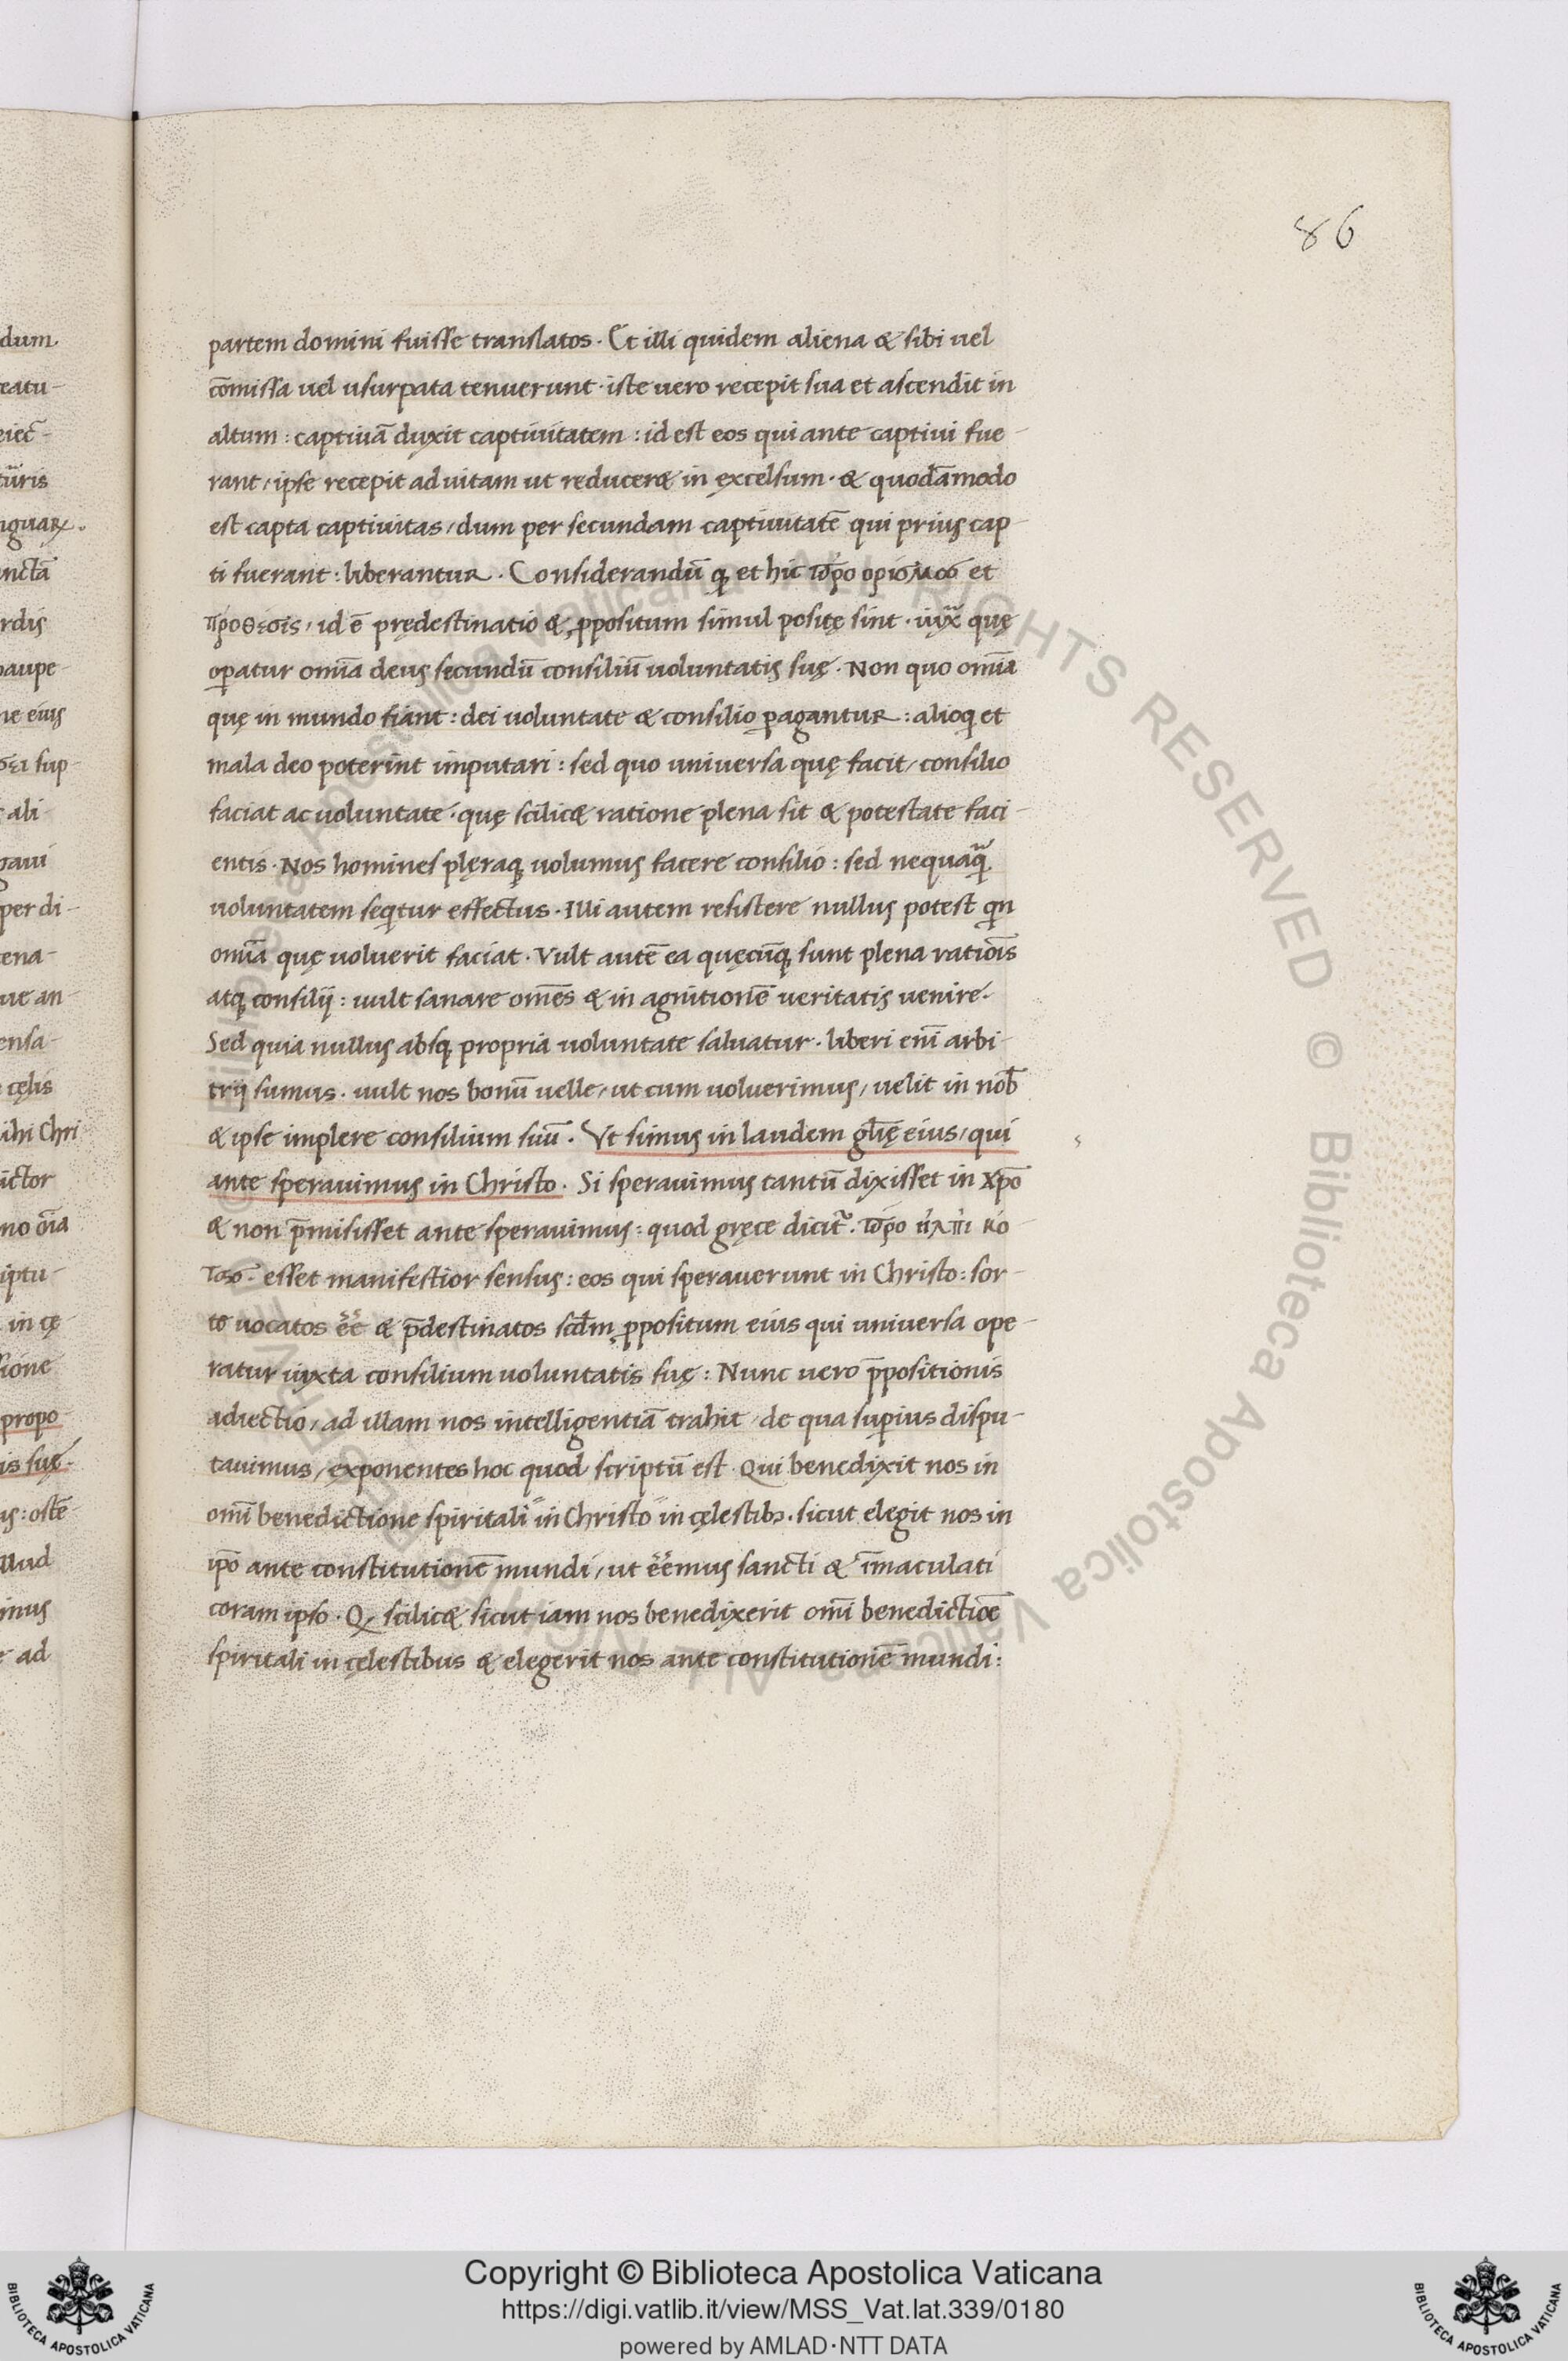 86
partem domini fuisse translatos. Et illi quidem aliena & sibi vel
cōmissa uel usurpata tenuerunt. iste uero recepit sua et ascendit in
altum: captiuā duxit captiuitatem: id est eos qui ante captiui fue-
rant, ipse recepit ad uitam ut reducer& in excelsum. & quodāmodo
est capta captiuitas, dum per secundam captiuitatē qui prius cap-
ti fuerant: liberantur. Considerandū q et hic ϖρο ορισμοσ et
προθεσις, id ē prędestinatio & ꝓpositum simul positę sint. iuxͣ quę
oꝑatur omīa deus secundū consiliū uoluntatis suę. Non quo omīa
quę in mundo fiant: dei uoluntate & consilio ꝑagantur: alioq et
mala deo poterint imputari: sed quo universa quę facit, consilio
faciat ac uoluntate. quę scilic& ratione plena sit & potestate faci-
entis. Nos homines plęraqꝫ uolumus facere consilio: sed nequaqͣ
uoluntatem seqtur effectus. Illi autem resistere nullus potest qn
omīa quę uoluerit faciat. Vult autē ea quęcūqꝫ sunt plena ratiōis
atqꝫ consilij: uult sanare omēs & in agnitionē veritatis uenire.
Sed quia nullus absqꝫ propria uoluntate saluatur. liberi enī arbi-
trij sumus. uult nos bonū uelle, ut cum uoluerimus, uelit in nob̄
& ipse implere consilium suū. Vt simus in laudem gl̄ię eius, qui
ante sperauimus in Christo. Si sperauimus tantū dixisset in xp̄o
& non p̄misisset ante sperauimus: quod gręce dicit᷑. ϖρο ηλπι κο
τασ. esset manifestior sensus: eos qui sperauerunt in Christo: sor-
te uocatos ēē & p̄destinatos scd̄m ꝓpositum eius qui uniuersa ope-
ratur iuxta consilium uoluntatis suę: Nunc uero p̄positionis
adiectio, ad illam nos intelligentiā trahit, de qua suꝑius dispu-
tauimus, exponentes hoc quod scriptū est. Qui benedixit nos in
omī benedictione spiritali in Christo in cęlestibꝫ. sicut elegit nos in
ip̄o ante constitutionē mundi, ut ēēmus sancti & īmaculati
coram ipso. Q scilic& sicut iam nos benedixerit omī benedictiōe
spiritali in cęlestibus & elegerit nos ante constitutionē mundi:
Copyright © Biblioteca Apostolica Vaticana
https://digi.vatlib.it/view/MSS_Vat.lat.339/0180
powered by AMLAD·NTT DATA